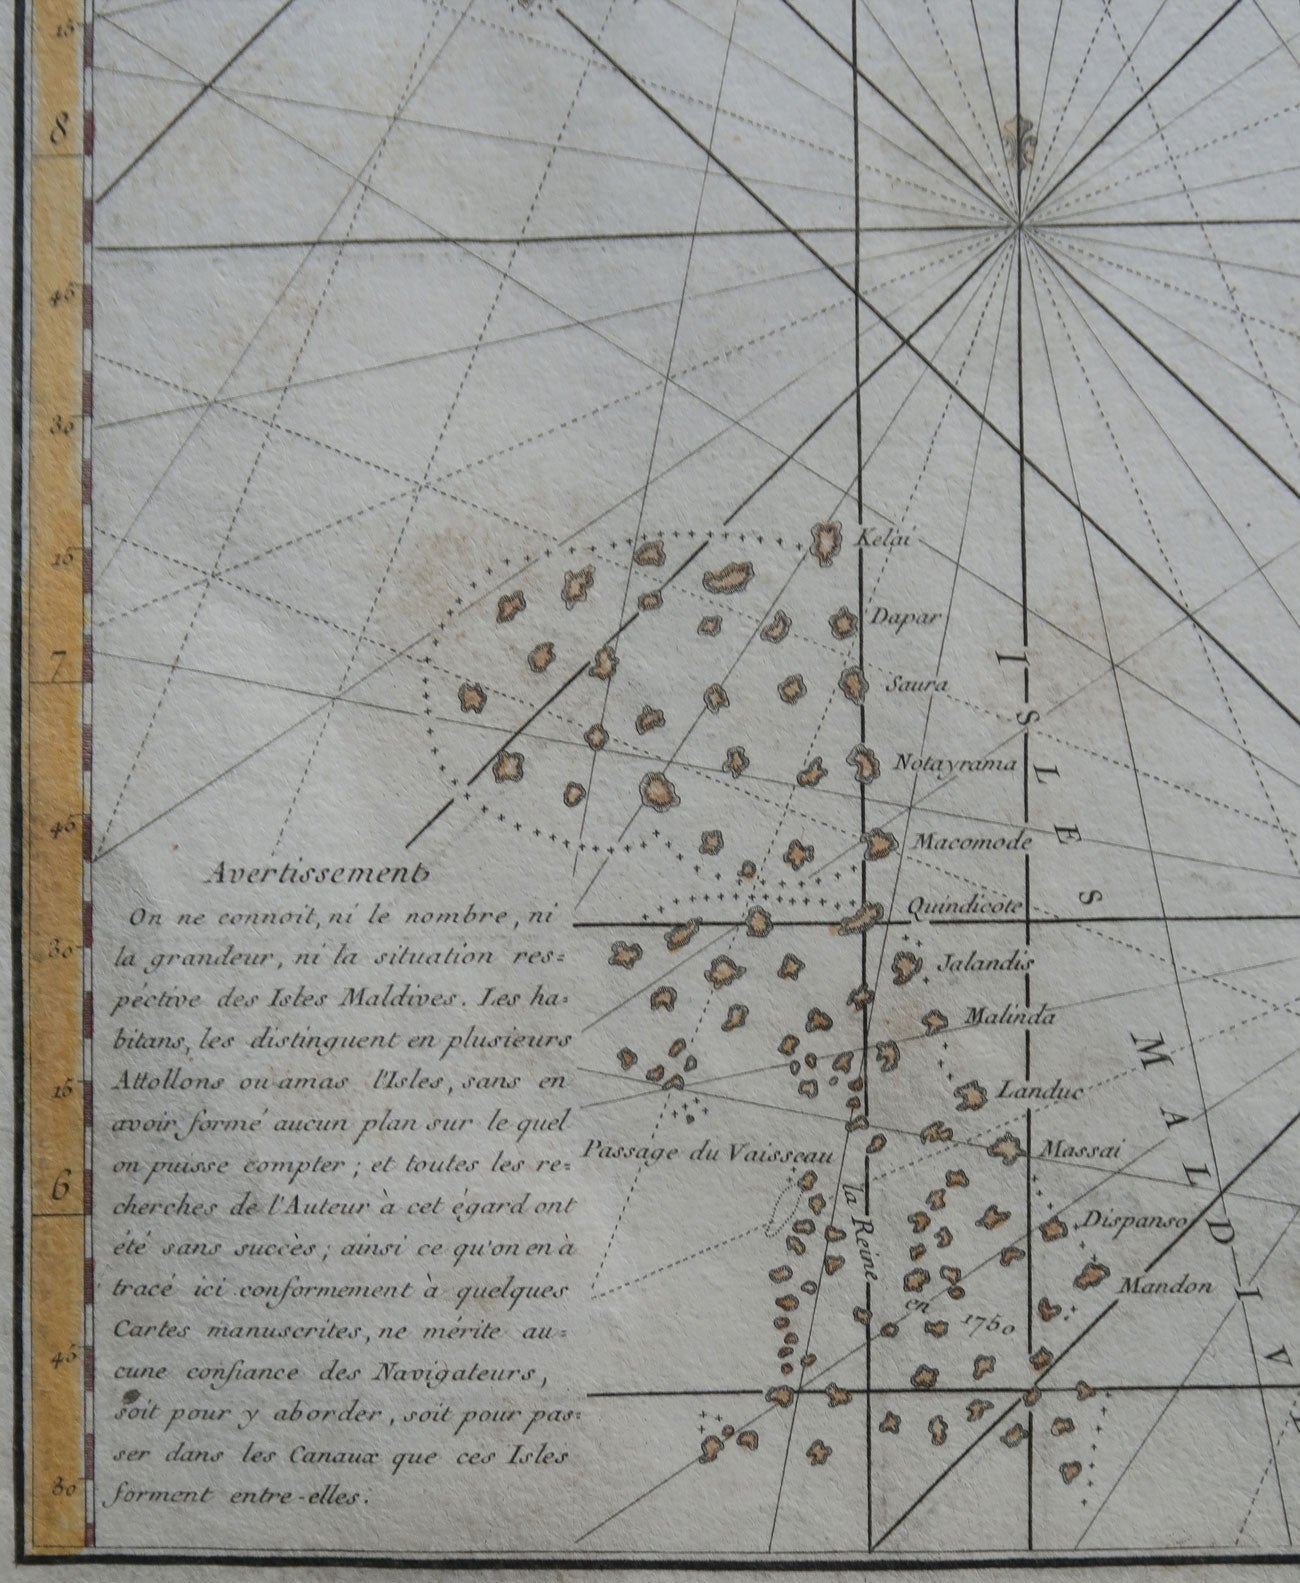 15
8
45
30
15
7
45
30
15
6
45
30
Kelai
Dapar
Saura
Notayrama
Macomode
Quindicote
Jalandis
Malinda
Landuc
Massai
Dispanso
Mandon
ISLES
MALDIV
Passage du Vaisseau
la Reine
en
1750
Avertissement
On ne connoit, ni le nombre, ni
la grandeur, ni la situation res=
péctive des Isles Maldives. Les ha=
bitans, les distinguent en plusieurs
Attollons ou amas l'Isles, sans en
avoir formé aucun plan sur le quel
on puisse compter ; et toutes les re=
cherches de l'Auteur à cet égard ont
été sans succès ; ainsi ce qu'on en à
tracé ici conformement à quelques
Cartes manuscrites, ne mérite au=
cune confiance des Navigateurs,
soit pour y aborder, soit pour pas=
ser dans les Canaux que ces Isles
forment entre-elles.